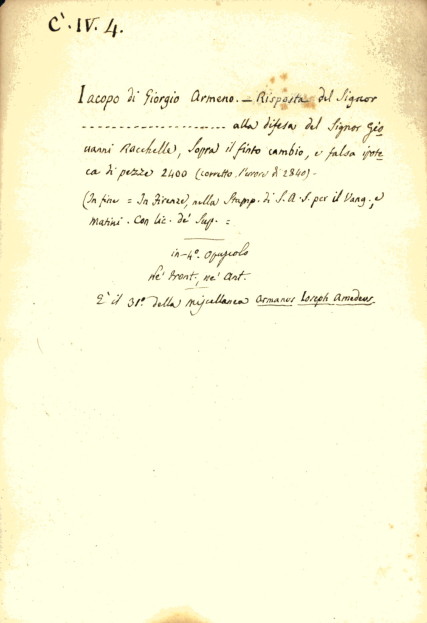 C'. IV. 4.
Iacopo di Giorgio Armeno. — Risposta del Signor
......................... alla difesa del Signor Gio
uanni Racchelle, sopra il finto cambio, e falsa ipote
ca di pezze 2400 (corretto l'errore di 2840).
(In fine = In Firenze, nella Stamp. di S. A. S. per il Vang., e
Matini. Con lic. de' Sup. =
in-4º. Opuscolo
Ne' Front., ne' Ant.
E' il 31º. della miscellanea Armanus Ioseph Amedeus.